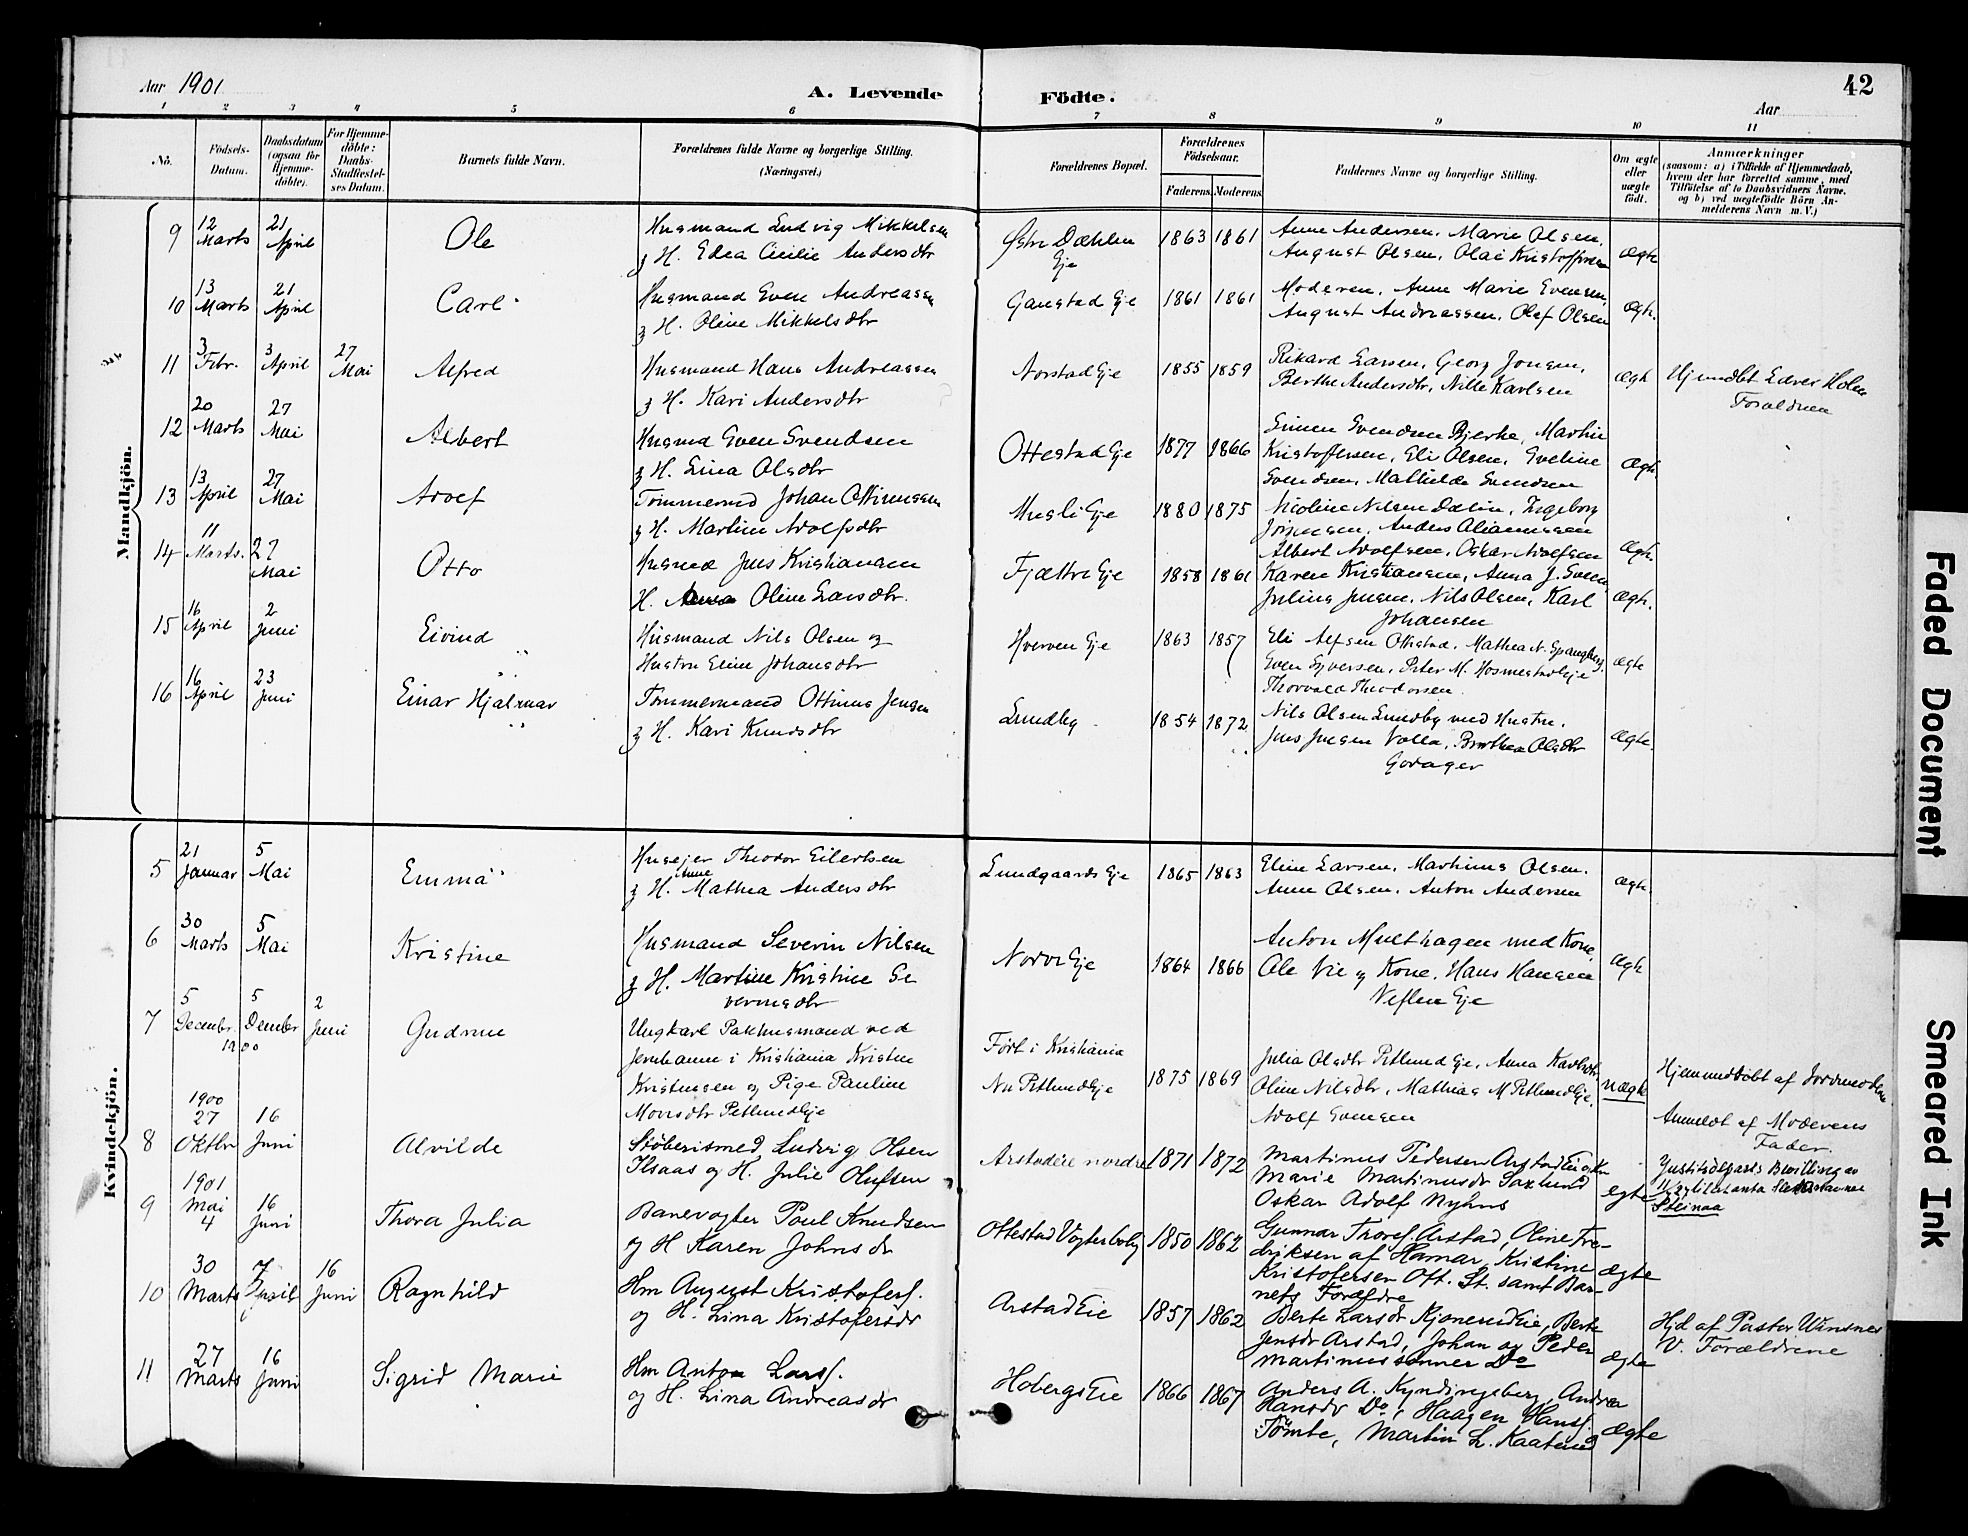 Aar 1901
A. Levende Födte.
42
Aar
1 2 3 4 5 6 7 8 9 10 11
No.
Födsels-Datum.
Daabsdatum (ogsaa for Hjemme-döbte).
For Hjemme-döbte: Daabs-Stadfæstel-ses Datum.
Barnets fulde Navn.
Forældrenes fulde Navne og borgerlige Stilling. (Næringsvei.)
Forældrenes Bopæl.
Forældrenes Födselsaar.
Faderens Moderens
Faddernes Navne og borgerlige Stilling.
Om ægte eller uægte födt.
Anmærkninger
(saasom: a) i Tilfælde af Hjemmedaab, hvem der har forrettet samme, med Tilföielse af to Daabsvidners Navne, og b) ved uægtefödte Börn An-melderens Navn m. V.)
Mandkjön.
9 12 Marts 21 April Ole
Husmand Ludvig Mikkelsen
g H. Edea Cicilie Andersdtr
Østre Dæhlen Eje 1863 1861
Anne Andersen, Marie Olsen,
August Olsen, Olai Kristoffersen
ægte
10 13 Marts 21 April Carl
Husmand Even Andreassen
g H. Oline Mikkelsdtr
Ganestad Eje 1861 1861
Moderen, Anne Marie Evensen,
August Andreassen, Olef Olsen
ægt.
11 3 Febr. 3 April 27 Mai Alfred
Husmand Hans Andreassen
g H. Kari Andersdtr
Norstad Eje 1855 1859
Rikard Larsen, Georg Jensen,
Berthe Andersdtr, Nille Karlsen
ægt
Hjemdbt Edvev Holm
Forældren
12 20 Marts 27 Mai Albert
Husmd Even Svendsen
g H. Lina Olsdtr
Ottestad Eje 1877 1866
Simen Svendsen Bjerke, Martin
Kristoffersen, Eli Olsen, Eveline
Svendsen, Mathilde Svendsen
ægt.
13 13 April 27 Mai Adolf
Tømmermd Johan Ottinussen
g H. Martine Adolfsdtr
Husli Eje 1880 1875
Nicoline Nilsen Dælin, Ingeborg
Jørgensen, Anders
Albert Adolfsen, Oskar Adolfsen
ægt.
14 11 Marts. 27 Mai Otto
Husmd Jens Kristiansen
H. Oline Larsdtr.
Fjættre Eje 1858 1861
Karen Kristiansen, Anna J. Sveen
Julius Jensen, Nils Olsen, Karl
Johansen
ægt.
15 16 April 2 Juni Eivind
Husmand Nils Olsen og
Hustru Eline Johansdtr
Hverven Eje 1863 1857
Eli Alfsen Ottestad, Mathea N. Spangberg,
Even Syversen, Peter M. Hosmestadeje
Thorvald Theodorsen.
ægte
16 16 April 23 Juni Einar Hjalmar
Tømmermand Ottinus Jensen
g H. Kari Knudsdtr
Lundby 1854 1872
Nils Olsen Lundby med Hustru.
Jens Jensen Volla, Berthea Olsdtr
Godager
ægte.
Kvindekjön.
5 21 Januar 5 Mai Emma
Husejer Theodor Eilertsen
g H. Anne Mathea Andersdtr
Lundgaards Eje 1865 1863
Eline Larsen, Marthinus Olsen.
Anne Olsen, Anton Andersen
ægt.
6 30 Marts 5 Mai Kristine
Husmand Severin Nilsen
g H. Martine Kristine Se
verinsdtr
Nordvi Eje 1864 1866
Anton Multhagen med Kone,
Ole Vie g Kone, Hans Hansen
Neflen Eje
ægt
7 5 Decembr. 1900 5 Dember 2 Juni Gudrun
Ungkarl Pakhusmand ved
Jernbanen i Kristiania Kristen
Kristensen og Pige Pauline
Monsdtr Petlund Eje
Født i Kristiania
Nu Petlund Eje 1875 1869
Julia Olsdtr Petlund Eje, Anna Karlsdtr
Oline Nilsdtr, Mathias M Petlund Eje,
Adolf Svensen
uægte
Hjemmedøbt af Jordmoderen
Anmeldt af Moderens
Fader.
8 1900 27 Oktbr 16 Juni Alvilde
Støberismed Ludvig Olsen
Ilsaas og H. Julie Olufsen
Arstadeie nordre 1871 1872
Martinus Pedersen Arstad Eie g Kn
Marie Martinusdr Saxlund
Oskar Adolf Nyhus
egte
Justitsdeparts Bevilling av
11/27 til at anta Slektsnavnet
Steinaa
9 1901 Mai 4 16 Juni Thora Julia
Banevogter Poul Knudsen
og H Karen Johnsdr
Ottestad Vogterbolig 1850 1862
Gunnar Thoresf. Arstad, Oline Fre-
driksen af Hamar, Kristine
Kristofersen Ott. St. samt Bar-
nets Forældre
ægte
10 30 Marts 7 April 16 Juni Ragnhild
Hm August Kristofersf.
og H. Lina Kristofersdr
Arstad Eie 1857 1862
Berte Larsdr Kjonerud Eie, Berte
Jensdr Arstad, Johan og Peder
Martinussønner Do
ægte
Hjd af Pastor Winsnes
V. Forældrene
11 27 Marts 16 Juni Sigrid Marie
Hm Anton Larsf.
og H. Lina Andreasdr
Hobergs Eie 1866 1867
Anders A. Kyndingsberg, Andrea
Hansdr Do, Haagen Hansf.
Tömte, Martin L. Kaaterud
ægte
Faded Document
Smeared Ink